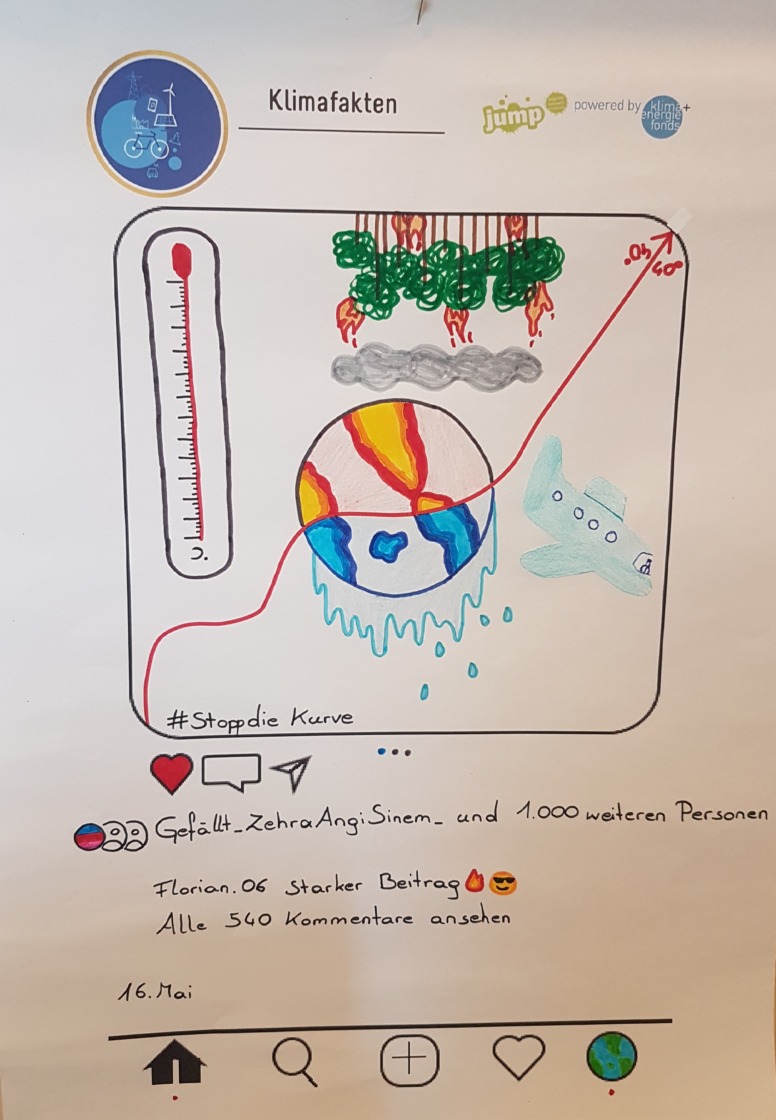 Klimafakten
jump
powered by
klima+
energie
fonds
40°
#Stoppdie Kurve
Gefällt_ZehraAngiSinem_ und 1.000 weiteren Personen
Florian.06 Starker Beitrag🔥😎
Alle 540 Kommentare ansehen
16.Mai